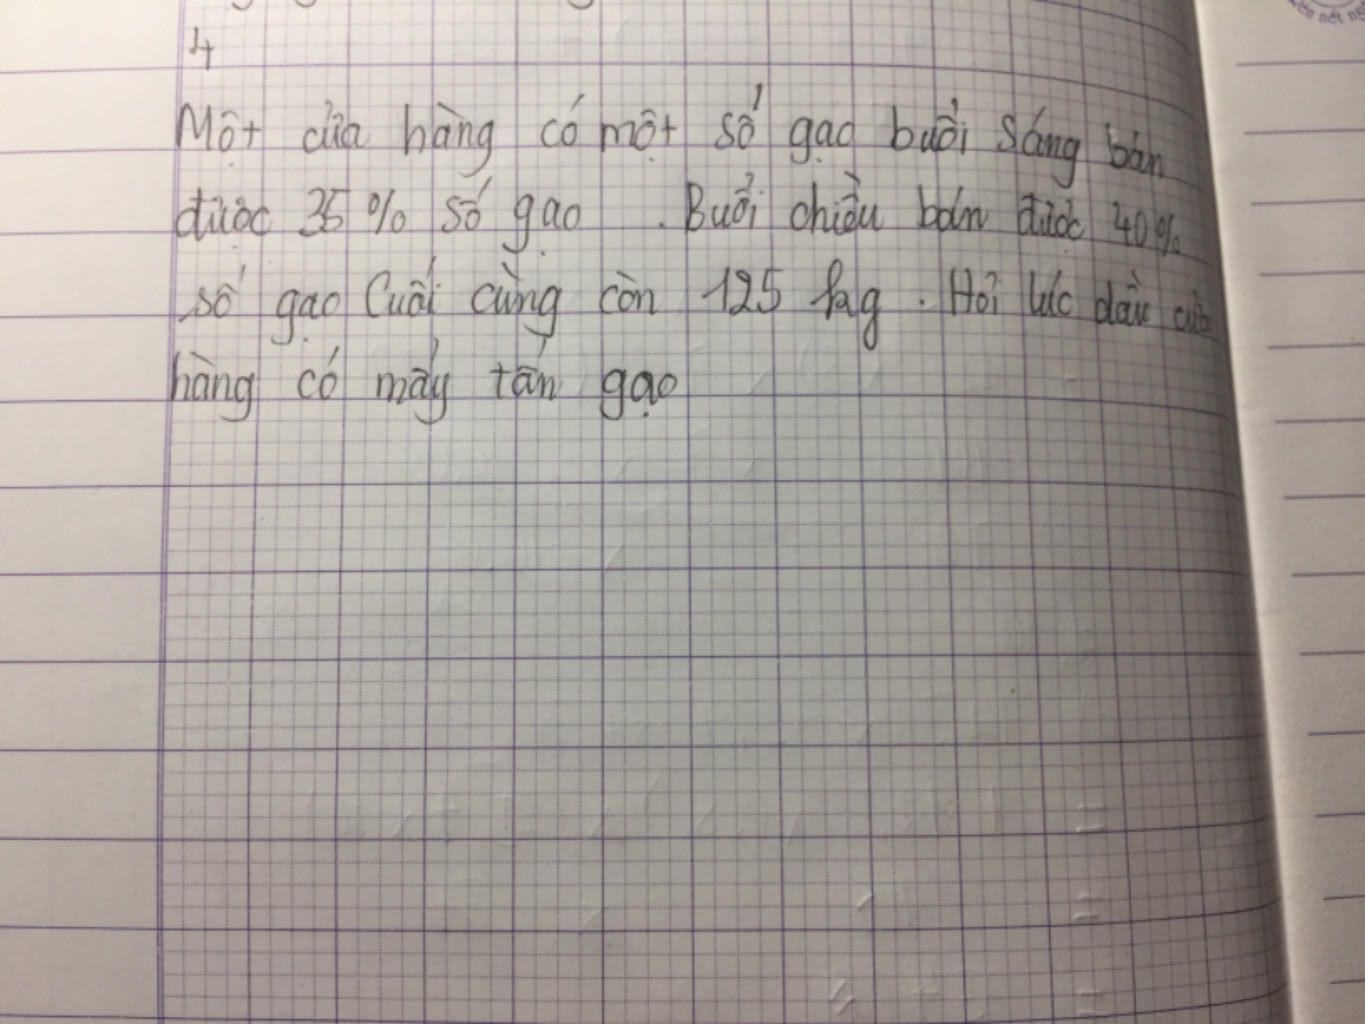 4
Một cửa hàng có một số gạo buổi sáng bán
được 35% số gạo . Buổi chiều bán được 40%
số gạo Cuối cùng còn 125 kg . Hỏi lúc đầu cửa
hàng có mấy tấn gạo